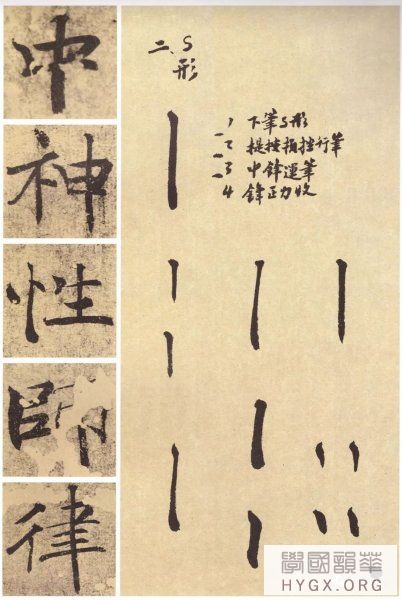 冲
神
性
師
律
二、S
形
1 下筆S形
2 提 行筆
3 中鋒運筆
4 鋒正力收
學國韻華
HYGX.ORG